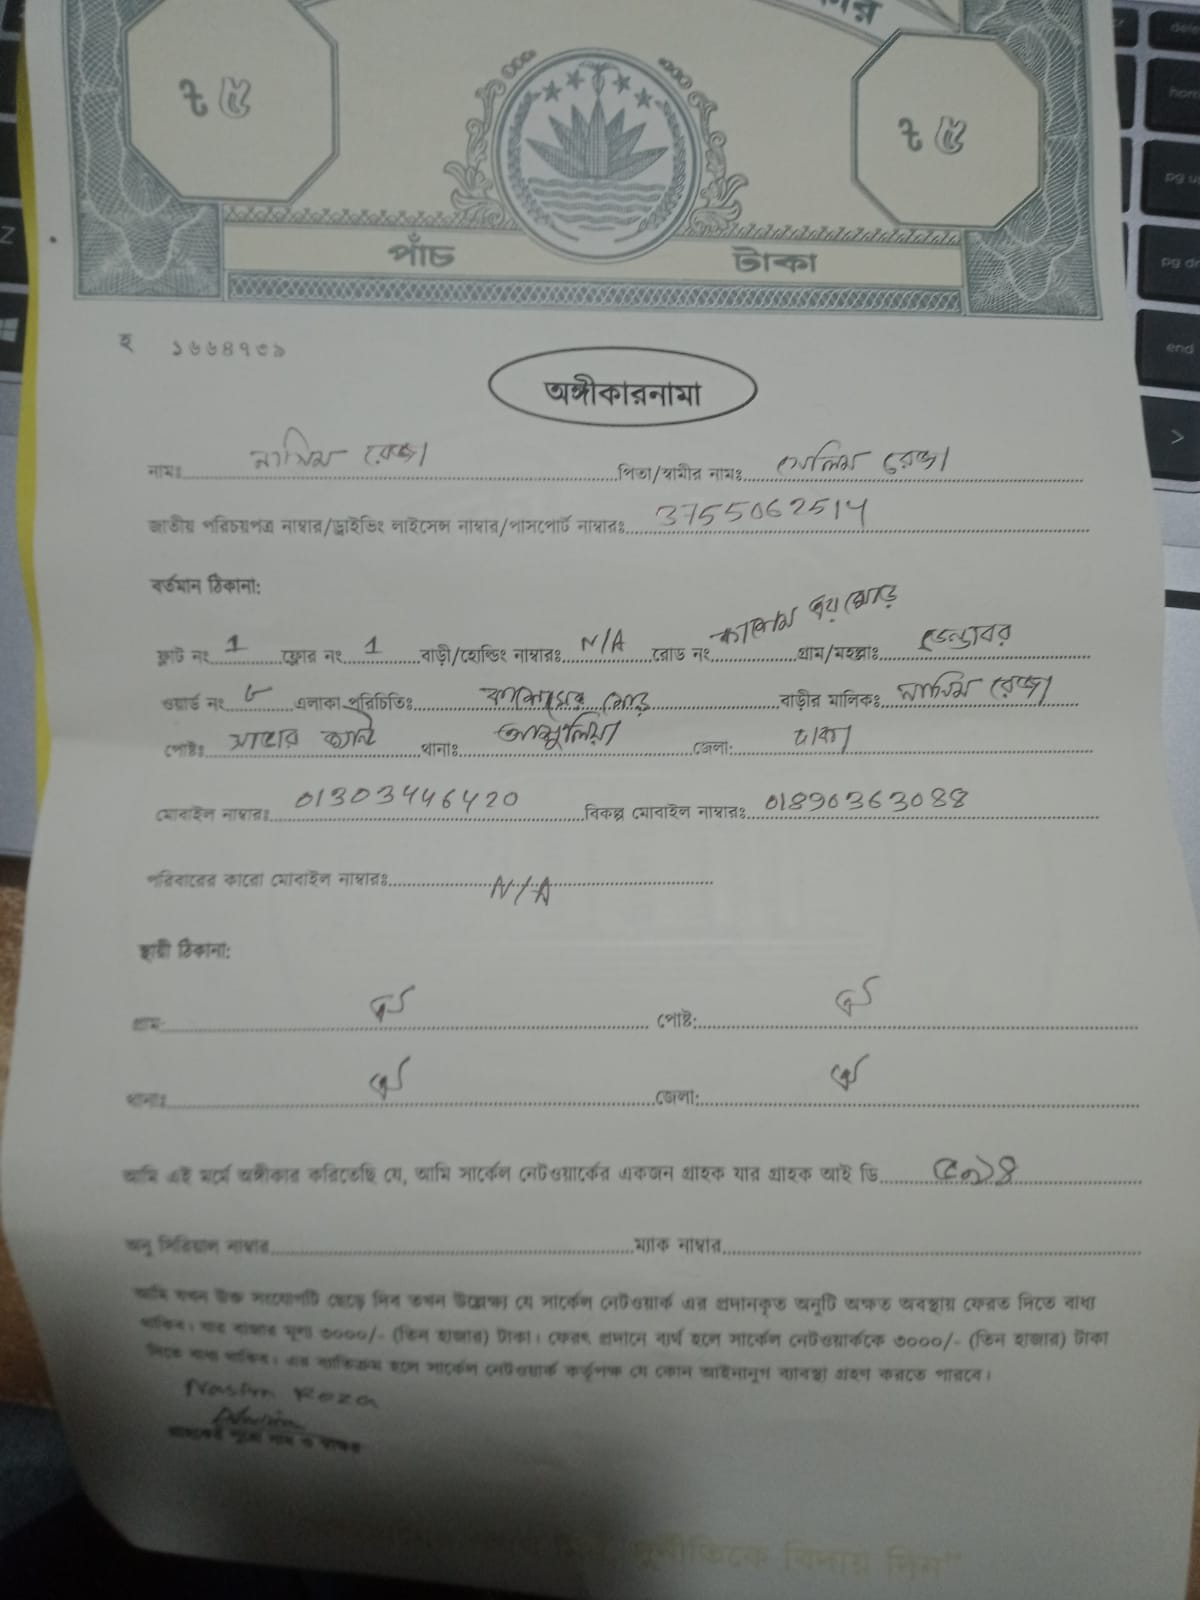 ৳ ৫
৳ ৫
পাঁচ টাকা
হ ১৬৬৪৭৩৯
অঙ্গীকারনামা
নামঃ নাসিম রেজা পিতা/স্বামীর নামঃ সেলিম রেজা
জাতীয় পরিচয়পত্র নাম্বার/ড্রাইভিং লাইসেন্স নাম্বার/পাসপোর্ট নাম্বারঃ 3755062514
বর্তমান ঠিকানা:
ফ্লাট নং 1 ফ্লোর নং 1 বাড়ী/হোল্ডিং নাম্বারঃ N/A রোড নং গ্রাম/মহল্লাঃ ডেন্ডাবর
ওয়ার্ড নং ৮ এলাকা পরিচিতিঃ বাড়ীর মালিকঃ নাসিম রেজা
পোষ্টঃ সাভার ক্যান্ট থানাঃ আশুলিয়া জেলা: ঢাকা
মোবাইল নাম্বারঃ 01303446420 বিকল্প মোবাইল নাম্বারঃ 01890363088
পরিবারের কারো মোবাইল নাম্বারঃ N/A
স্থায়ী ঠিকানা:
গ্রাম: ঐ পোষ্ট: ঐ
থানাঃ ঐ জেলা: ঐ
আমি এই মর্মে অঙ্গীকার করিতেছি যে, আমি সার্কেল নেটওয়ার্কের একজন গ্রাহক যার গ্রাহক আই ডি
অনু সিরিয়াল নাম্বার ম্যাক নাম্বার
আমি যখন উক্ত সংযোগটি ছেড়ে দিব তখন উল্লেক্ষ্য যে সার্কেল নেটওয়ার্ক এর প্রদানকৃত অনুটি অক্ষত অবস্থায় ফেরত দিতে বাধ্য
থাকিব। যার বাজার মূল্য ৩০০০/- (তিন হাজার) টাকা। ফেরৎ প্রদানে ব্যর্থ হলে সার্কেল নেটওয়ার্ককে ৩০০০/- (তিন হাজার) টাকা
দিতে বাধ্য থাকিব। এর ব্যতিক্রম হলে সার্কেল নেটওয়ার্ক কর্তৃপক্ষ যে কোন আইনানুগ ব্যবস্থা গ্রহণ করতে পারবে।
Nasim Reza
গ্রাহকের পুরো নাম ও স্বাক্ষর
দুর্নীতিকে বিদায় দিন"